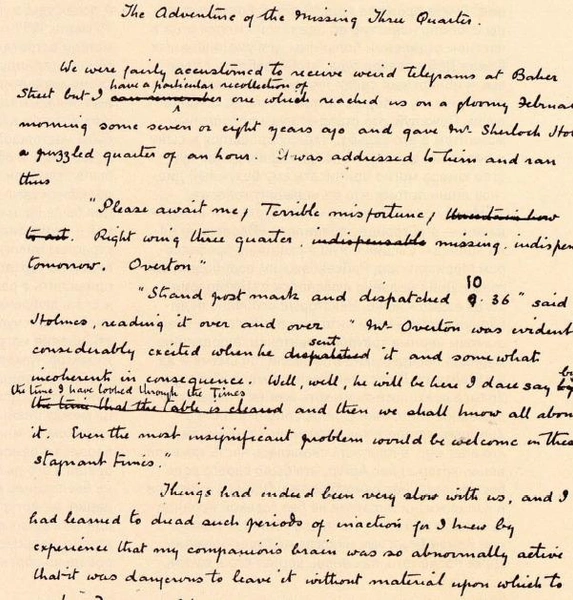 The Adventure of the Missing Three Quarter.
We were fairly accustomed to receive weird telegrams at Baker
have a particular recollection of
Street but I can remember one which reached us on a gloomy Februar
morning some seven or eight years ago and gave Mr. Sherlock Hol
a puzzled quarter of an hour. It was addressed to him and ran
thus
"Please await me, Terrible misfortune, Uncertain how
to act. Right wing three quarter, indispensable missing. indispen
tomorrow. Overton"
10
"Strand post mark and dispatched 9.36" said
Holmes, reading it over and over "Mr. Overton was evident
sent
considerably excited when he dispatched it and somewhat
incoherent in consequence. Well, well, he will be here I dare say by
the time I have looked through the Times
the time that the table is cleared and then we shall know all abou
it. Even the most insignificant problem would be welcome in these
stagnant times."
Things had indeed been very slow with us, and I
had learned to dread such periods of inaction for I knew by
experience that my companion's brain was so abnormally active
that it was dangerous to leave it without material upon which to